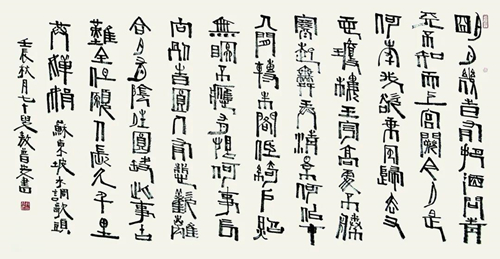 明月幾時有把酒問青
天不知天上宮闕今夕是
何年我欲乘風歸去又
恐瓊樓玉宇高處不勝
寒起舞弄清影何似在
人間轉朱閣低綺戶照
無眠不應有恨何事長
向別時圓人有悲歡離
合月有陰晴圓缺此事古
難全但願人長久千里
共嬋娟 蘇東坡水調歌頭
壬辰秋月七十叟敖普安書